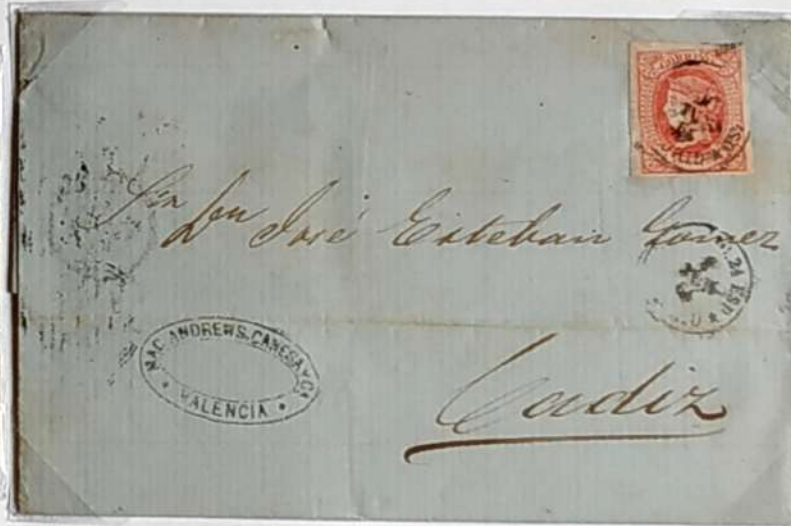 CORREOS
Sr. Dn José Esteban Gomez
MAC-ANDREWS-CANESA Y Ca
VALENCIA
Cadiz